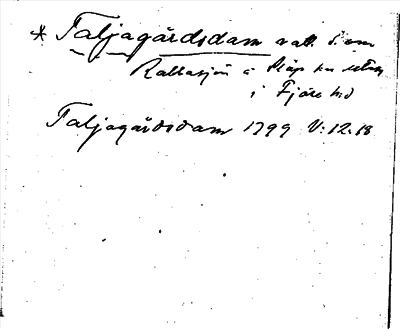 * Taljagärdsdam vatt. S om
Rallasjön i Släp sn utan
i Fjäre hd
Taljagärdsdam 1799 V:12.18